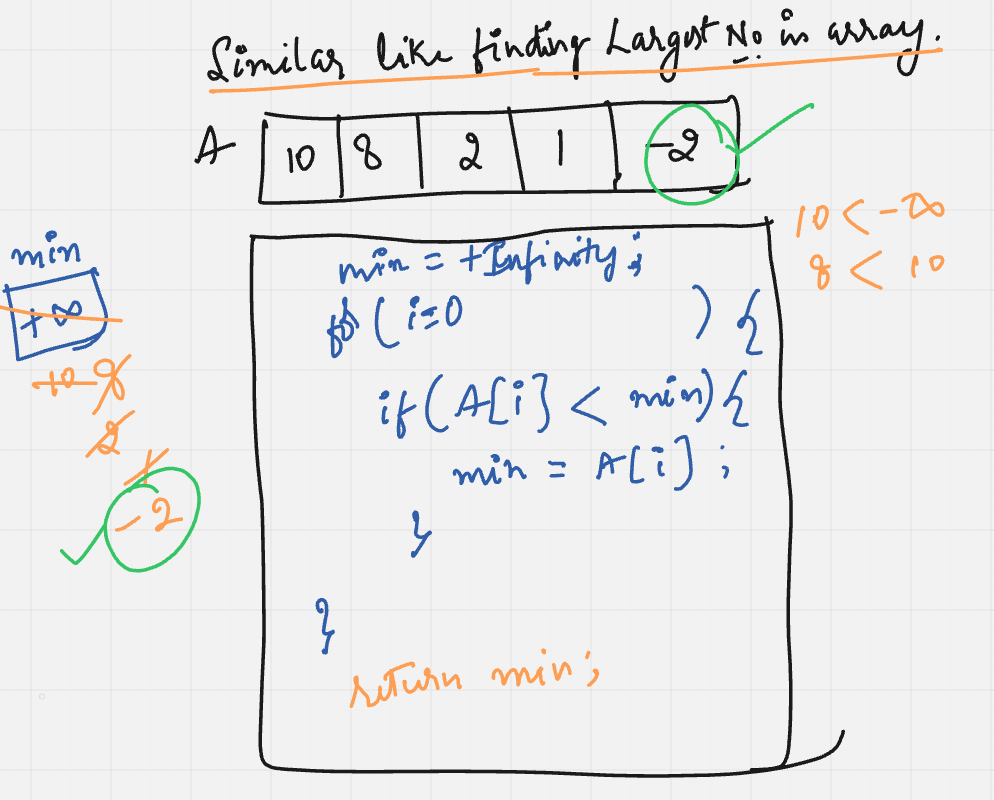 Similar like finding Largest No. in array.
A 10 8 2 1 -2
10 < -∞
8 < 10
min
+∞
10 8
2
1
-2
min = +Infinity;
for ( i=0 ) {
if ( A[i] < min) {
min = A[i] ;
}
}
return min;